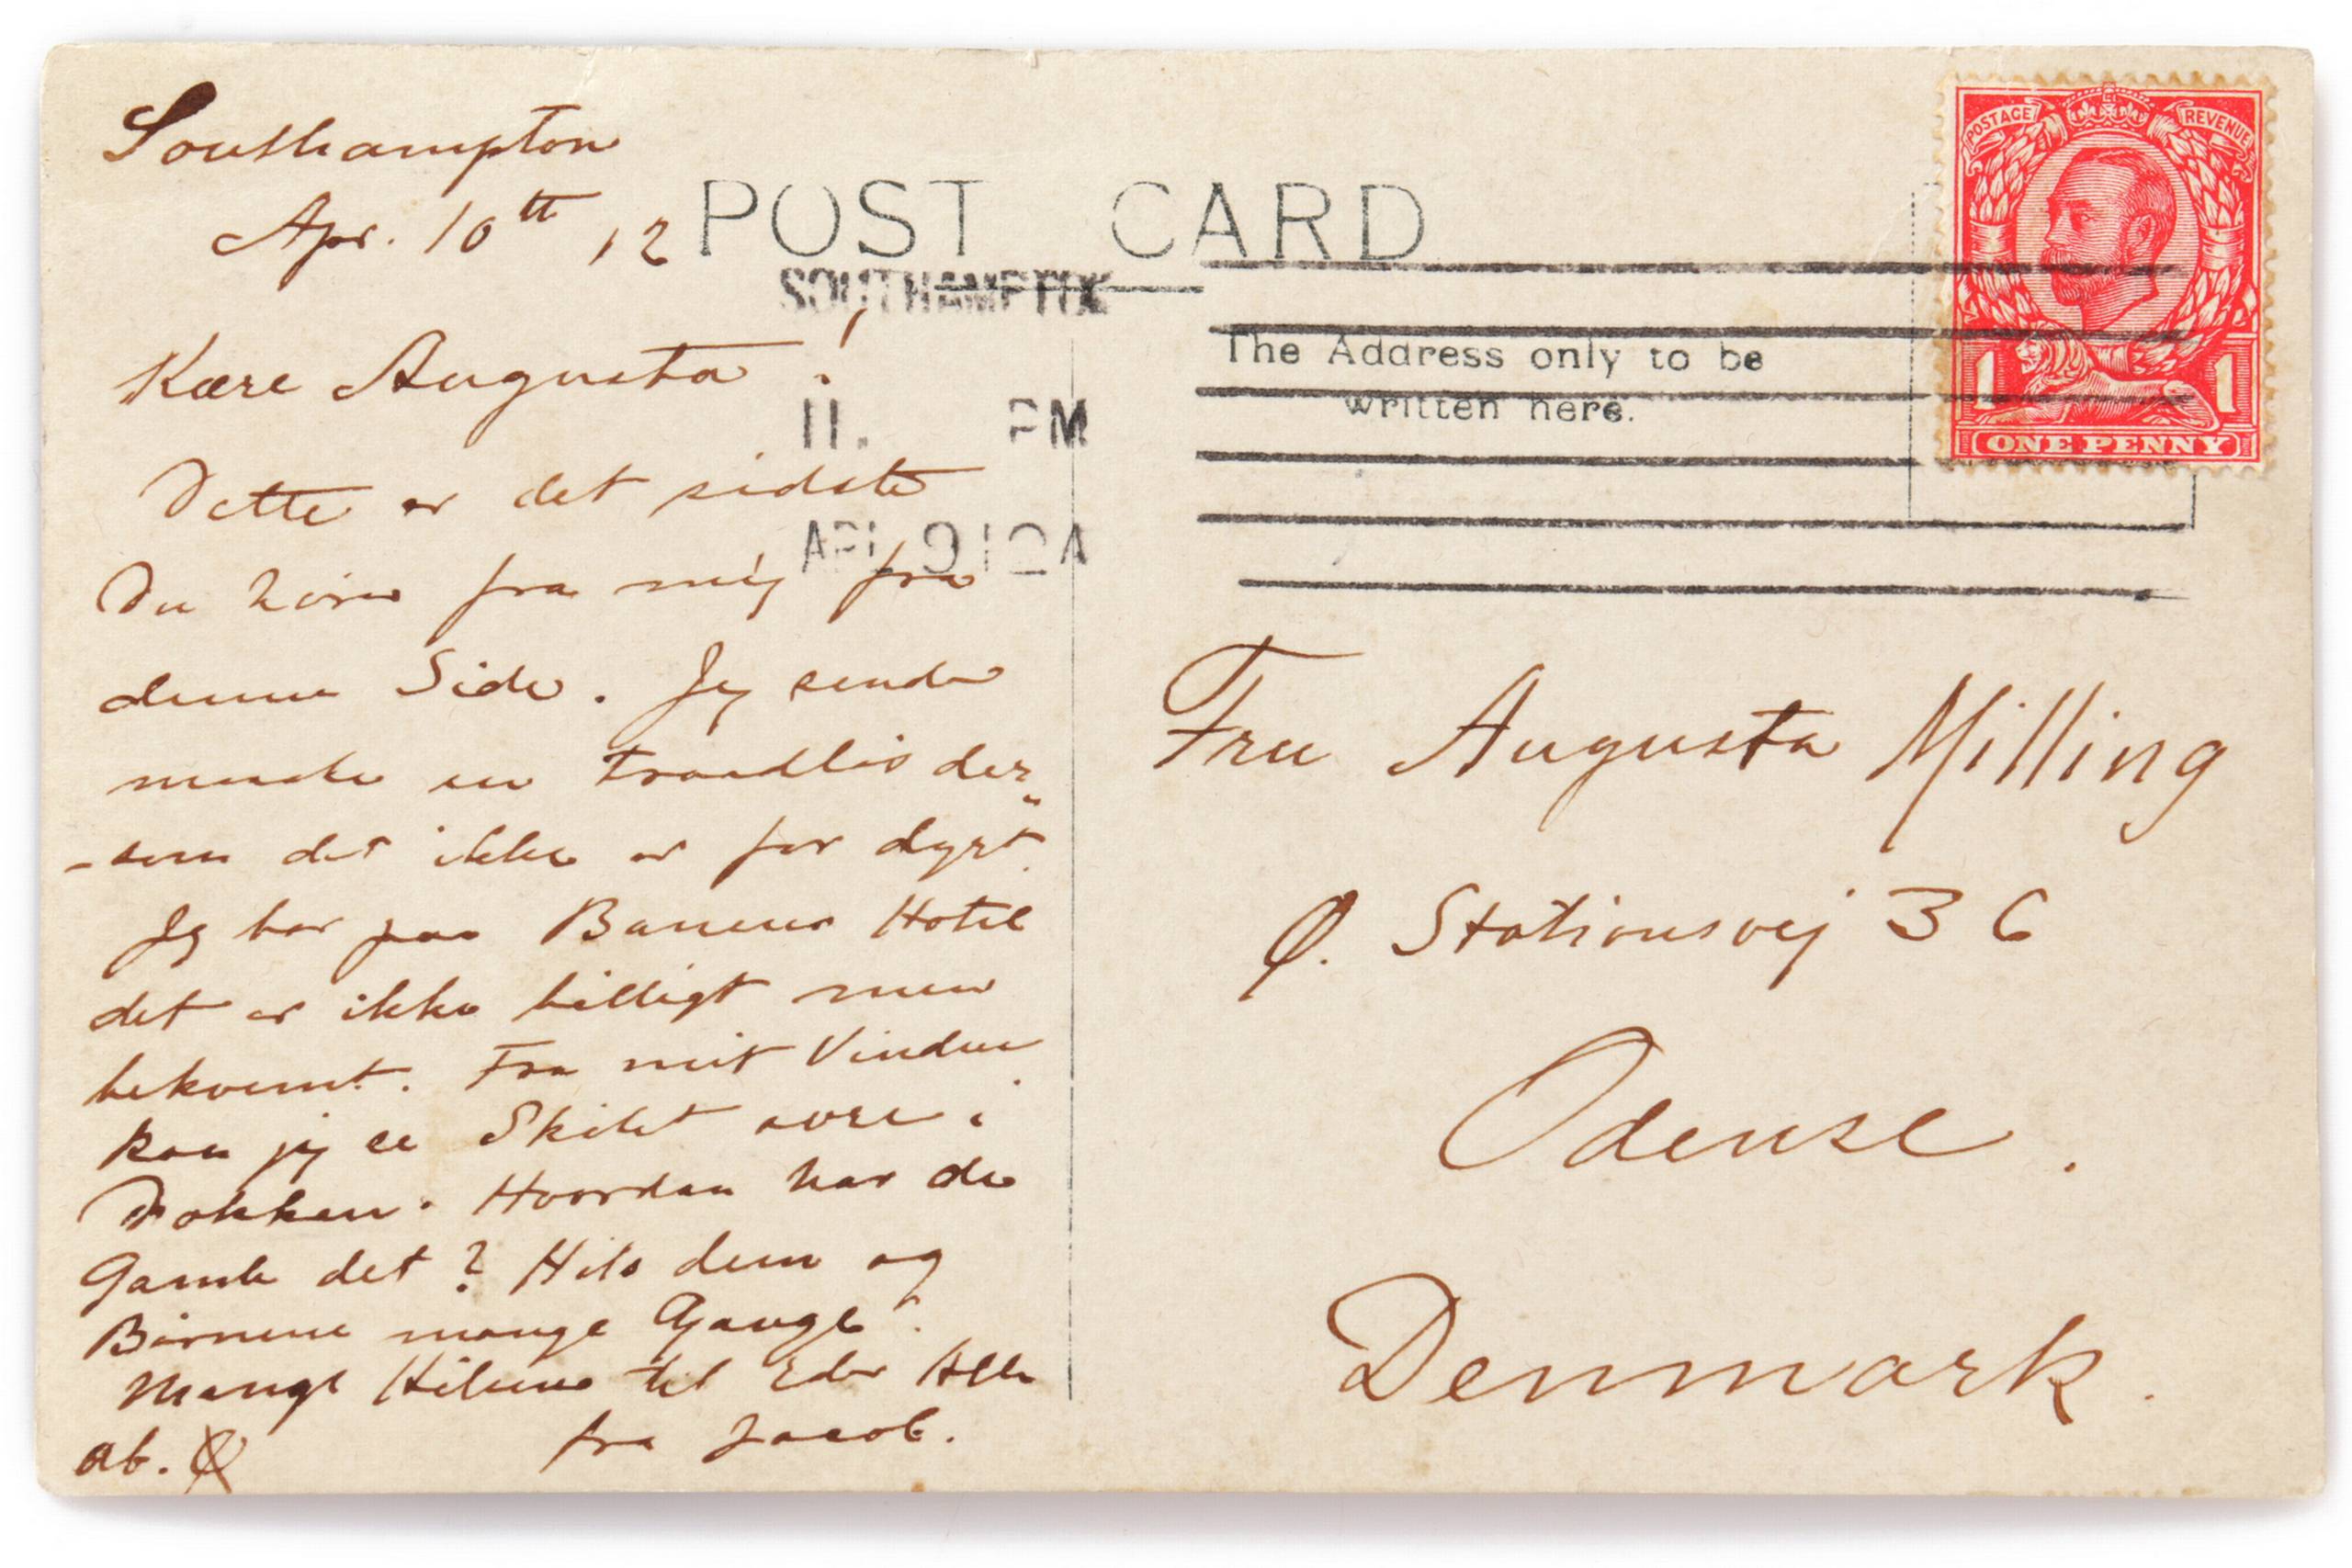 Southampton
Apr. 10th 12
POST CARD
SOUTHAMPTON
Kære Augusta!
11. PM
Dette er det sidste
AP 9 12 A
Du hører fra mig fra
denne Side. Jeg sender
maaske en Traadløs der„
-som det ikke er for dyrt.
Jeg bor paa Hotel
det er ikke billigt men
bekvemt. Fra mit Vindue
kan jeg se Skibet ovre i
Dokken. Hvordan har de
Gamle det? Hils dem og
Børnene mange Gange.
Mange Hilsener til Eder Alle
fra Jacob.
POSTAGE REVENUE
1 1
ONE PENNY
The Address only to be
written here.
Fru Augusta Milling
Ø. Stationsvej 36
Odense.
Denmark.